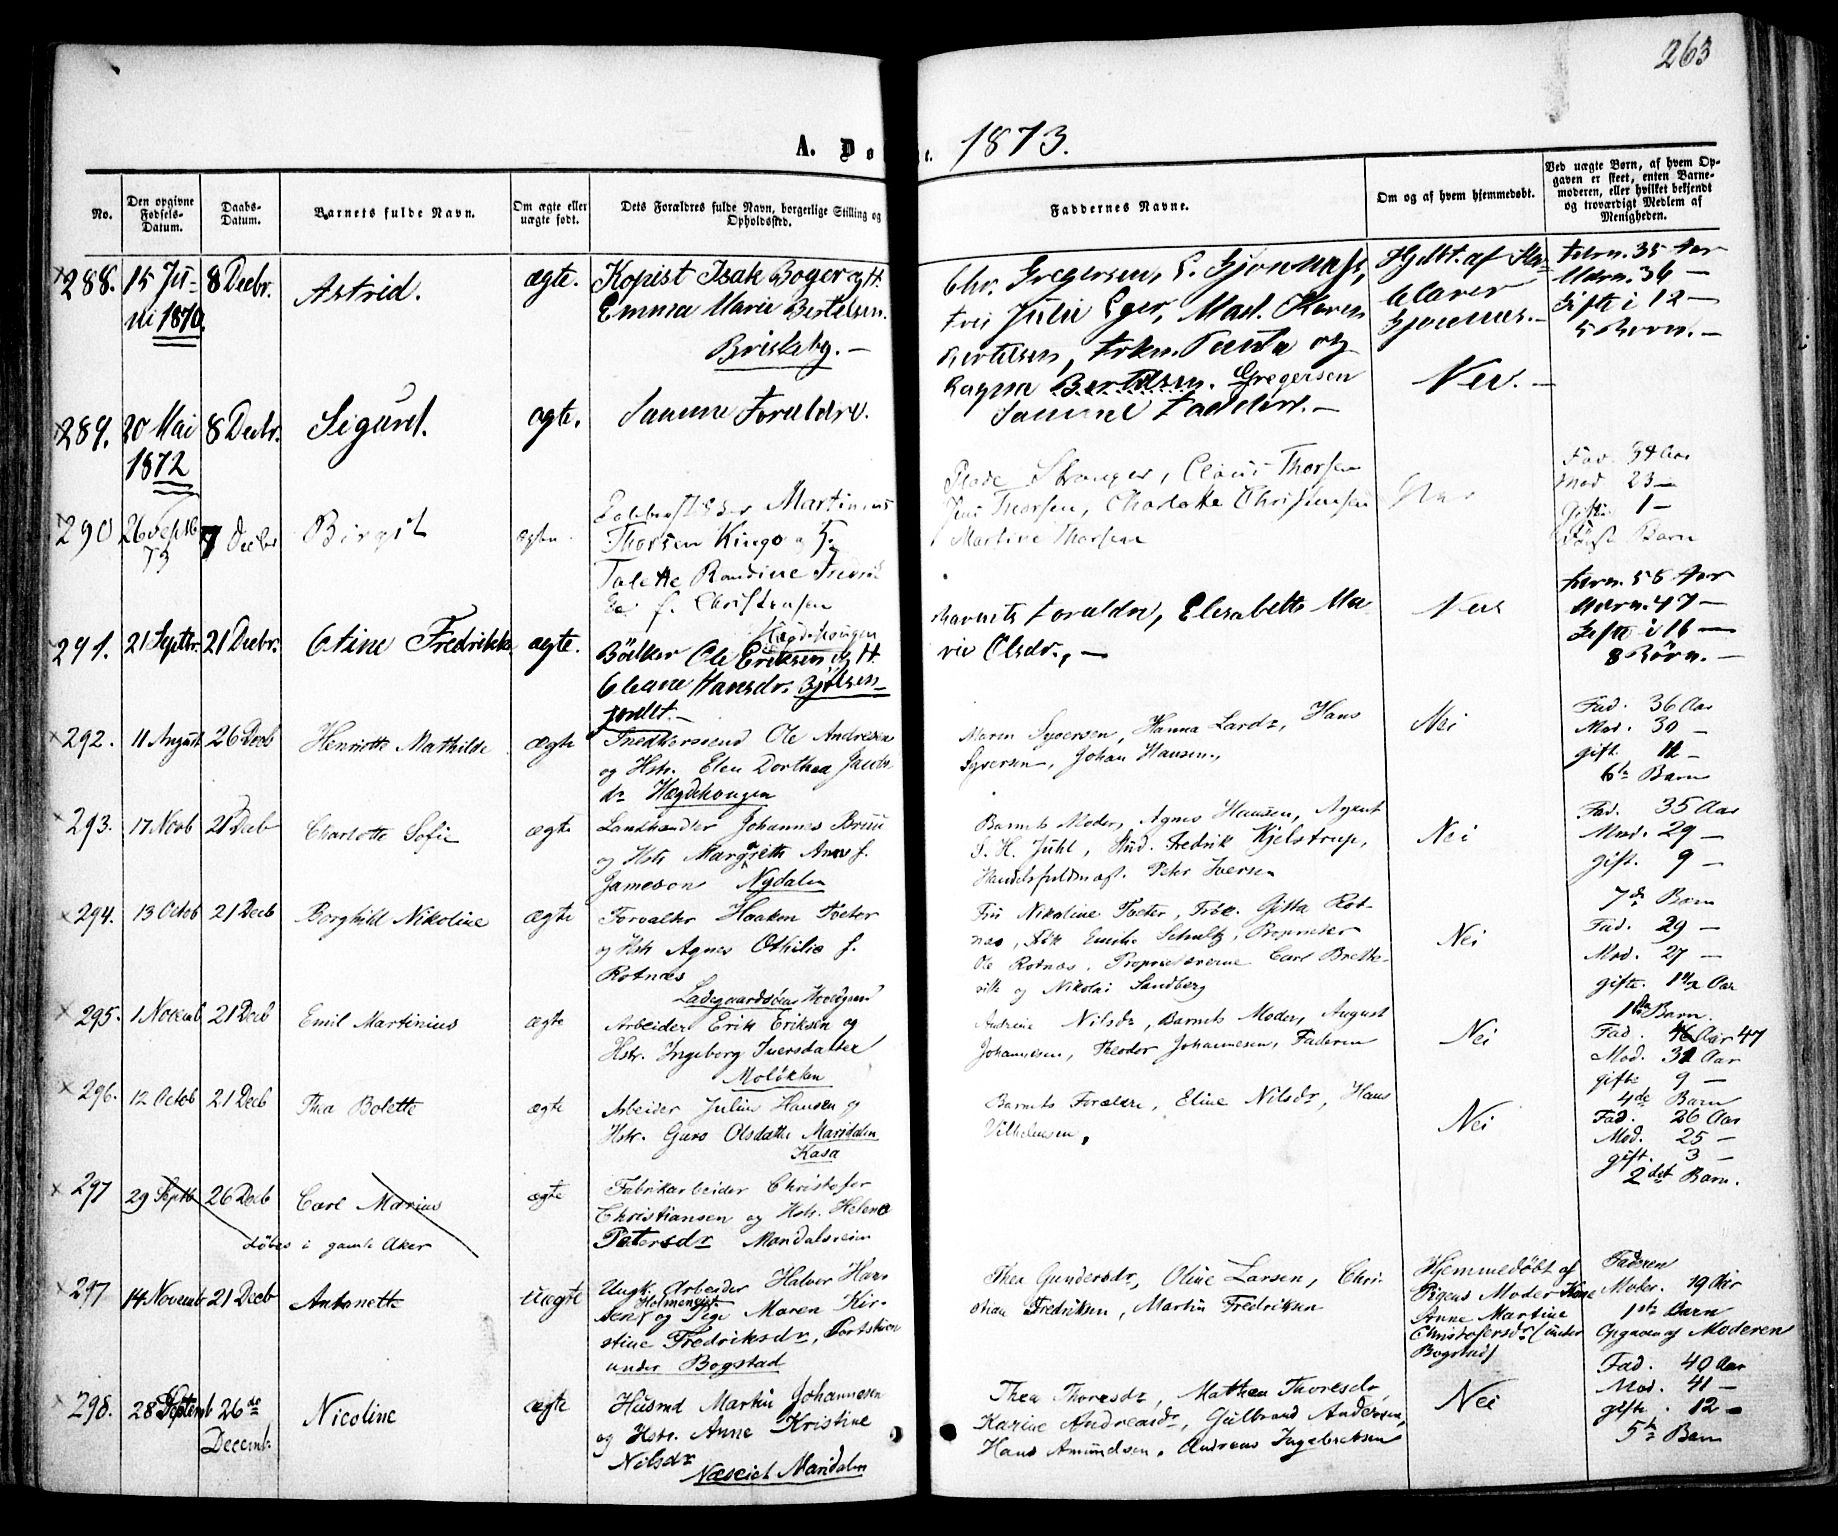 263
A. Døbte. 1873.
No.
Den opgivne Fødsels-Datum.
Daabs-Datum.
Barnets fulde Navn.
Om ægte eller uægte født.
Dets Forældres fulde Navn, borgerlige Stilling og Opholdssted.
Faddernes Navne.
Om og af hvem hjemmedøbt.
Ved uægte Børn, af hvem Opgaven er skeet, enten Barnemoderen, eller hvilket bekjendt og troværdigt Medlem af Menigheden.
288. 15 Juni 1870. 8 Decbr. Astrid. ægte.
Kopist Isak Boger og H.
Emma Marie Bertelsen.
Briskeby.
Chr. Gregersen, C. Gjønnes,
Frøi Julie Eger, Mad. Karen
Bertelsen, Frkn. Fanta og
Ragna Bertelsen. Gregersen
Hjdbt. af
Gjønnes.
Fadrn. 35 Aar
Modrn. 36 —
Gifte i 12 —
5 Børn. —
289. 20 Mai 1872 8 Decbr. Sigurd. ægte. Samme Forældre. Samme Faddere. — Nei. —
290 26 Sept 73 7 Decbr Birgit ægte.
Martinius
Thorsen Kingo og H.
Talette Randine Fredrik
f. Christensen
Stranger, Claus Thorsen
Jens Thorsen, Charlotte Christensen
Martine Thorsen
Nei
Fad. 34 Aar
Mod 23 —
Gift 1 —
Første Barn
291. 21 Septbr. 21 Decbr. Stine Fredrikke ægte.
Hægdehougen
Bødker Ole Eriksen og H.
Eleane Hansdr. Bjølsen-
fældt. —
Barnets Forældre, Elisabeth Ma-
rie Olsdr., —
Nei
Fadrn. 58 Aar
Modrn. 47 —
Gifte i 16 —
8 Børn. —
292. 11 August 26 Decb Henriette Mathilde ægte
Snedkersvend Ole Andresen
og Hstr. Elen Dorthea Jacobs
dr Hægdehougen
Maren Syversen, Hanna Lardr, Hans
Syversen, Johan Hansen,
Nei
Fad. 36 Aar
Mod. 30 —
gift. 12 —
6te Barn
293. 17 Novb 21 Decb Charlotte Sofie ægte
Landhandler Johannes Bruu
og Hstr Margreth Anne f.
Jameson Nydalen
Barnets Moder, Agnes Hansen, Agent
S. H. Juhl, Stud. Fredrik Kjelstrup,
Handelsfuldmægt. Peter Iversen
Nei
Fad. 35 Aar
Mod. 29 —
gift. 9 —
7de Barn
294. 13 Octob 21 Decb Borghild Nikoline ægte
Forvalter Haaken Tveter
og Hstr Agnes Othilie f.
Rotnæs
Ladegaardsøens Hovedgaard
Fru Nikoline Tveter, Frøk. Gitta Rot-
næs, Frk Emilie Schultz, Proprietær
Ole Rotnæs, Proprietærerne Carl Brette-
ville og Nikolai Sandberg
Nei
Fad. 29 —
Mod. 27 —
gifte. 1 1/2 Aar
1ste Barn.
295. 1 Novemb 21 Decb Emil Martinius ægte
Arbeider Erik Eriksen og
Hstr. Ingeborg Iversdatter
Moløkken
Andrine Nilsdr, Barnets Moder, August
Johannesen, Theodor Johannesen, Faderen
Nei
Fad. 46 Aar 47
Mod. 31 Aar
gifte 9 —
4de Barn
296. 12 Octob 21 Decb Thea Bolette ægte
Arbeider Julius Hansen og
Hstr. Guro Olsdatter Maridalen
Kasa
Barnets Forældre, Eline Nilsdr, Hans
Vilhelmsen,
Nei
Fad. 26 Aar
Mod. 25 —
gift. 3 —
2det Barn.
297 29 Septb 26 Decb Carl Marius ægte
døbes i gamle Aker
Fabrikarbeider Christofer
Christiansen og Hstr. Helene
Petersdr Mandalsveien
297 14 Novemb 21 Decb Antonette uægte
Ungk. Arbeider Halvor Han-
sen Holmengrst. og Pige Maren Kir-
stine Fredriksdr, Portstuen
under Bogstad
Thea Gundersdr, Oline Larsen, Chri-
stian Fredriksen, Martin Fredriksen
Hjemmedøbt af
Pigens Moder Kone
Anne Martine
Christofersdr (under
Bogstad)
Faderen
Moder. 19 Aar
1ste Barn
Opgaven af Moderen
298. 28 Septemb 26de Decemb. Nicoline ægte
Husmd Martin Johannesen
og Hstr. Anne Kristine
Nilsdr
Næseiet Maridalen
Thea Thoresdr, Mathea Thoresdr,
Karine Andreasdr, Gulbrand Andersen,
Hans Amundsen, Andreas Ingebretsen
Nei
Fad. 40 Aar
Mod. 41 —
gifte. 12 —
5te Barn